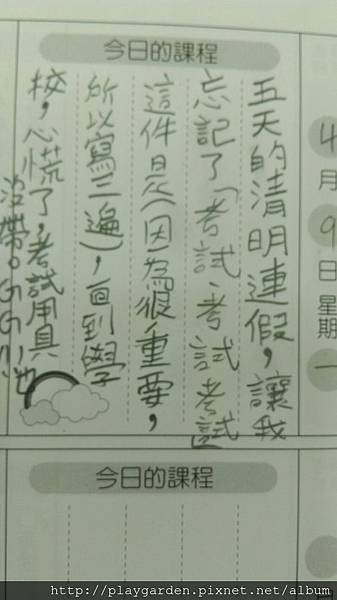 今日的課程
五天的清明連假，讓我
忘記了「考試、考試考試」
這件是(因為很重要，
所以寫三遍)，回到學
校，心慌了，考試用具
沒帶。GG了也
4
月
9
日
星
期
一
今日的課程
http://playgarden.pixnet.net/album